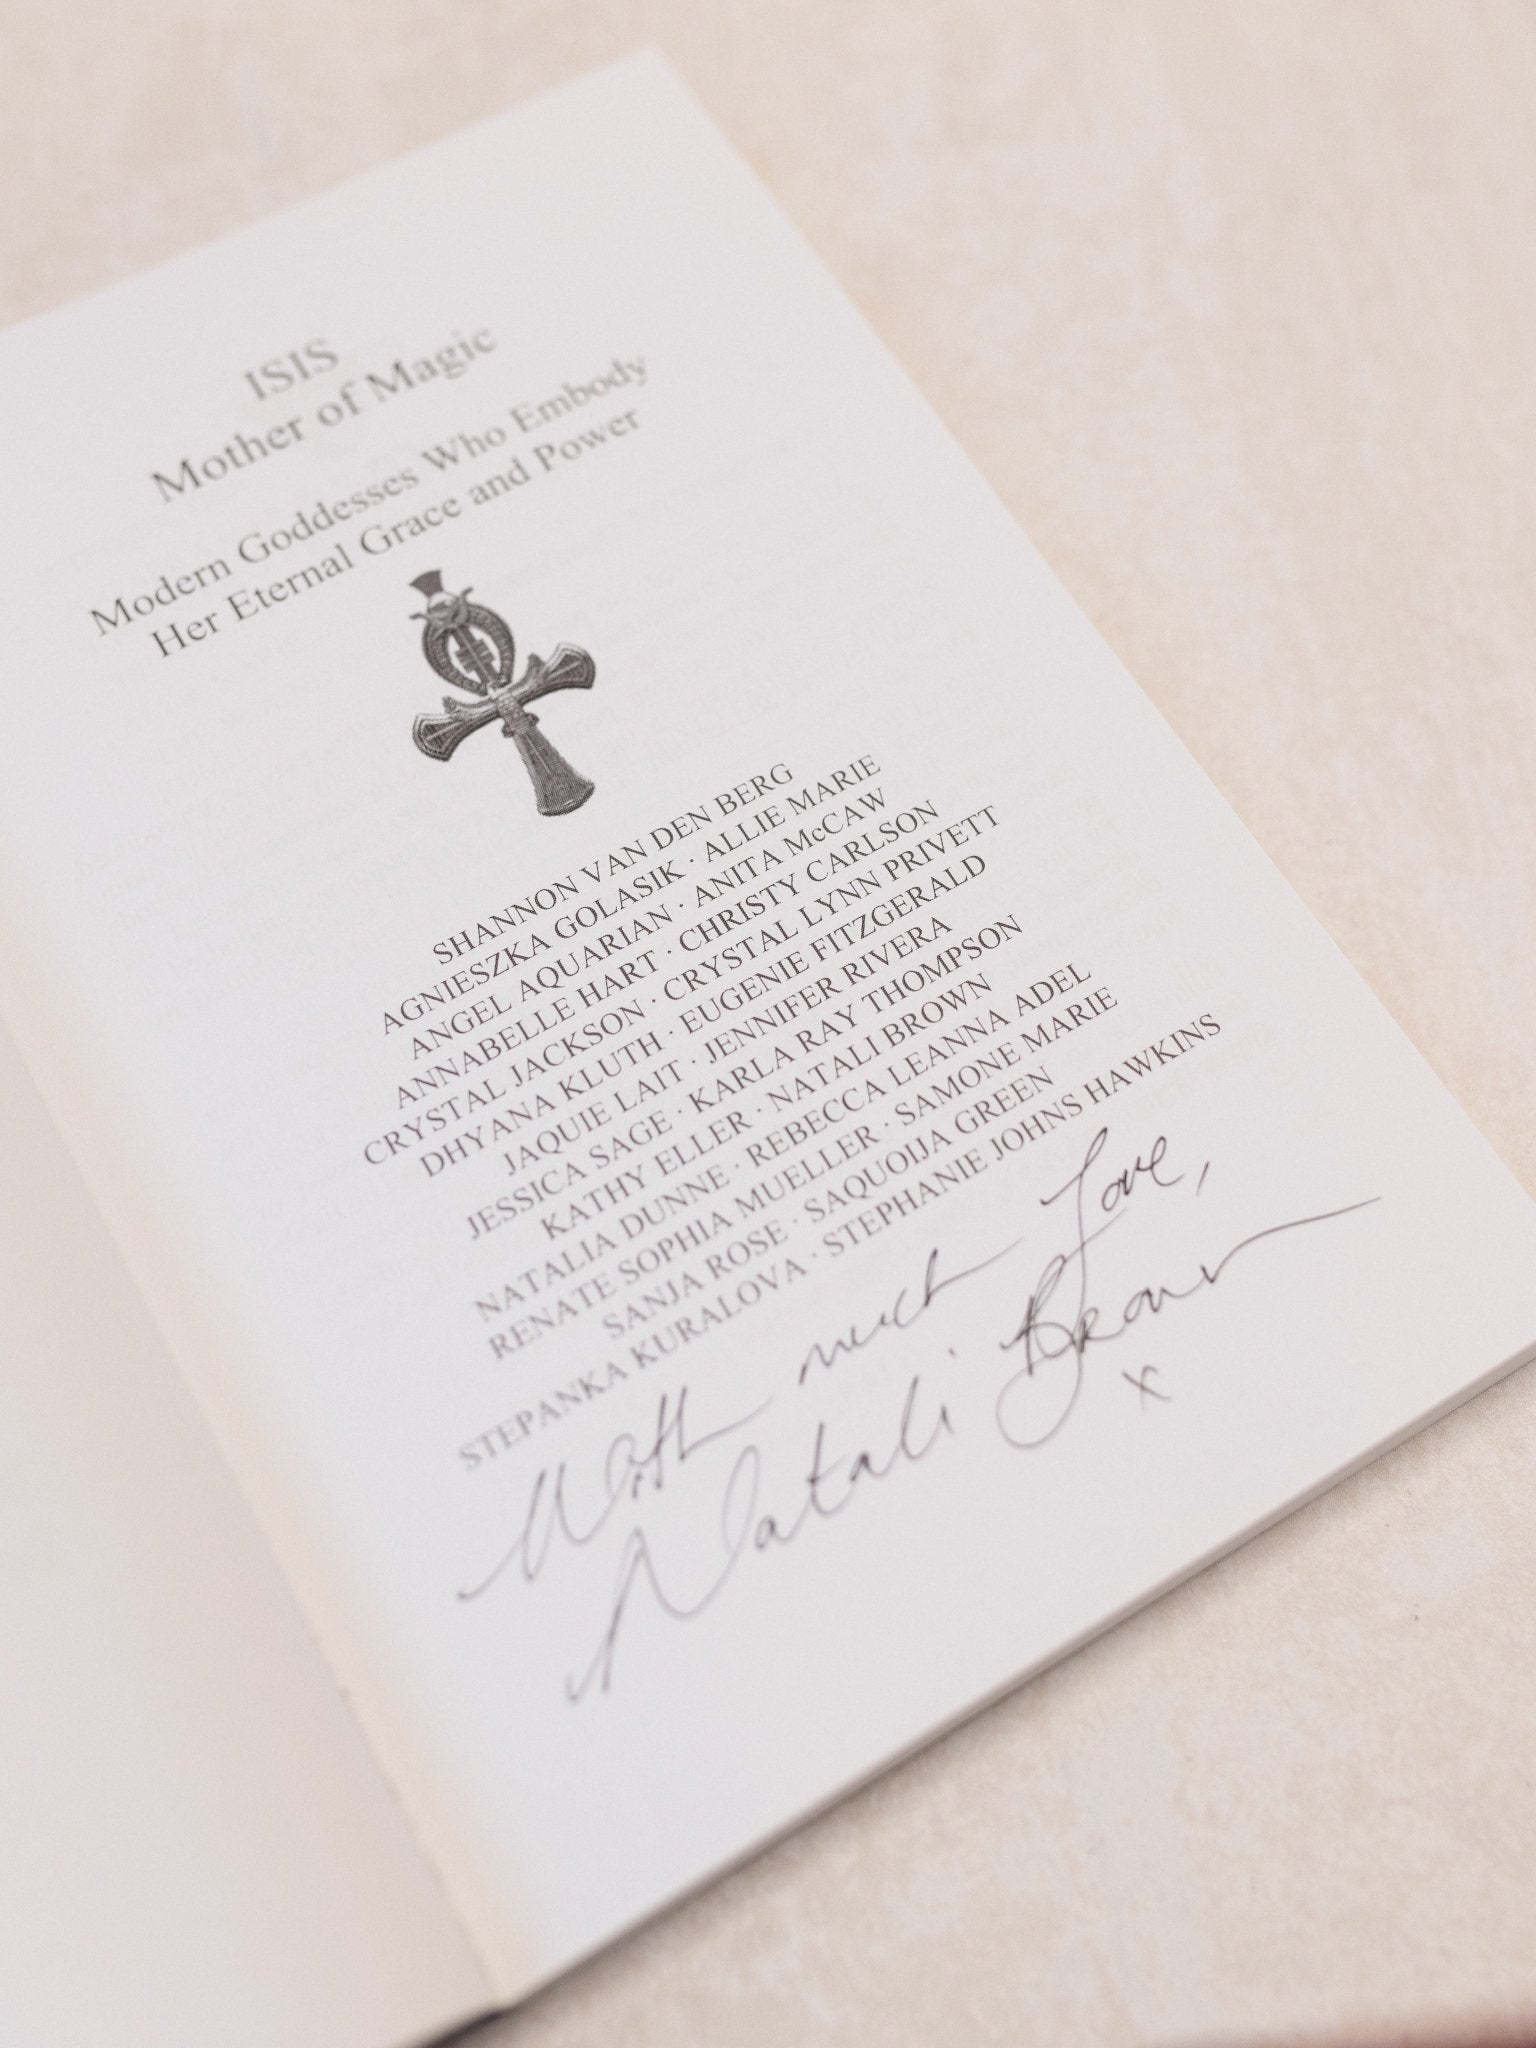 ISIS
Mother of Magic
Modern Goddesses Who Embody
Her Eternal Grace and Power
SHANNON VAN DEN BERG
AGNIESZKA GOLASIK · ALLIE MARIE
ANGEL AQUARIAN · ANITA McCAW
ANNABELLE HART · CHRISTY CARLSON
CRYSTAL JACKSON · CRYSTAL LYNN PRIVETT
DHYANA KLUTH · EUGENIE FITZGERALD
JAQUIE LAIT · JENNIFER RIVERA
JESSICA SAGE · KARLA RAY THOMPSON
KATHY ELLER · NATALI BROWN
NATALIA DUNNE · REBECCA LEANNA ADEL
RENATE SOPHIA MUELLER · SAMONE MARIE
SANJA ROSE · SAQUOIJA GREEN
STEPANKA KURALOVA · STEPHANIE JOHNS HAWKINS
With much Love,
Natali Brown
x